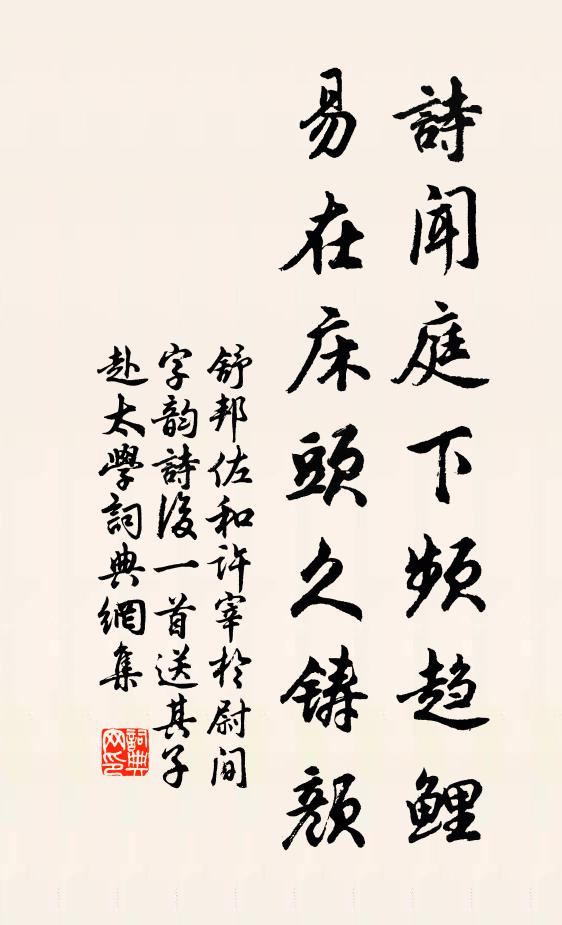 詩聞庭下頻趋鲤
易在床頭久鑄顏
舒邦佐和许宰於尉间
字韵詩後一首送其子
赴太學詞典網集
詞典
网印